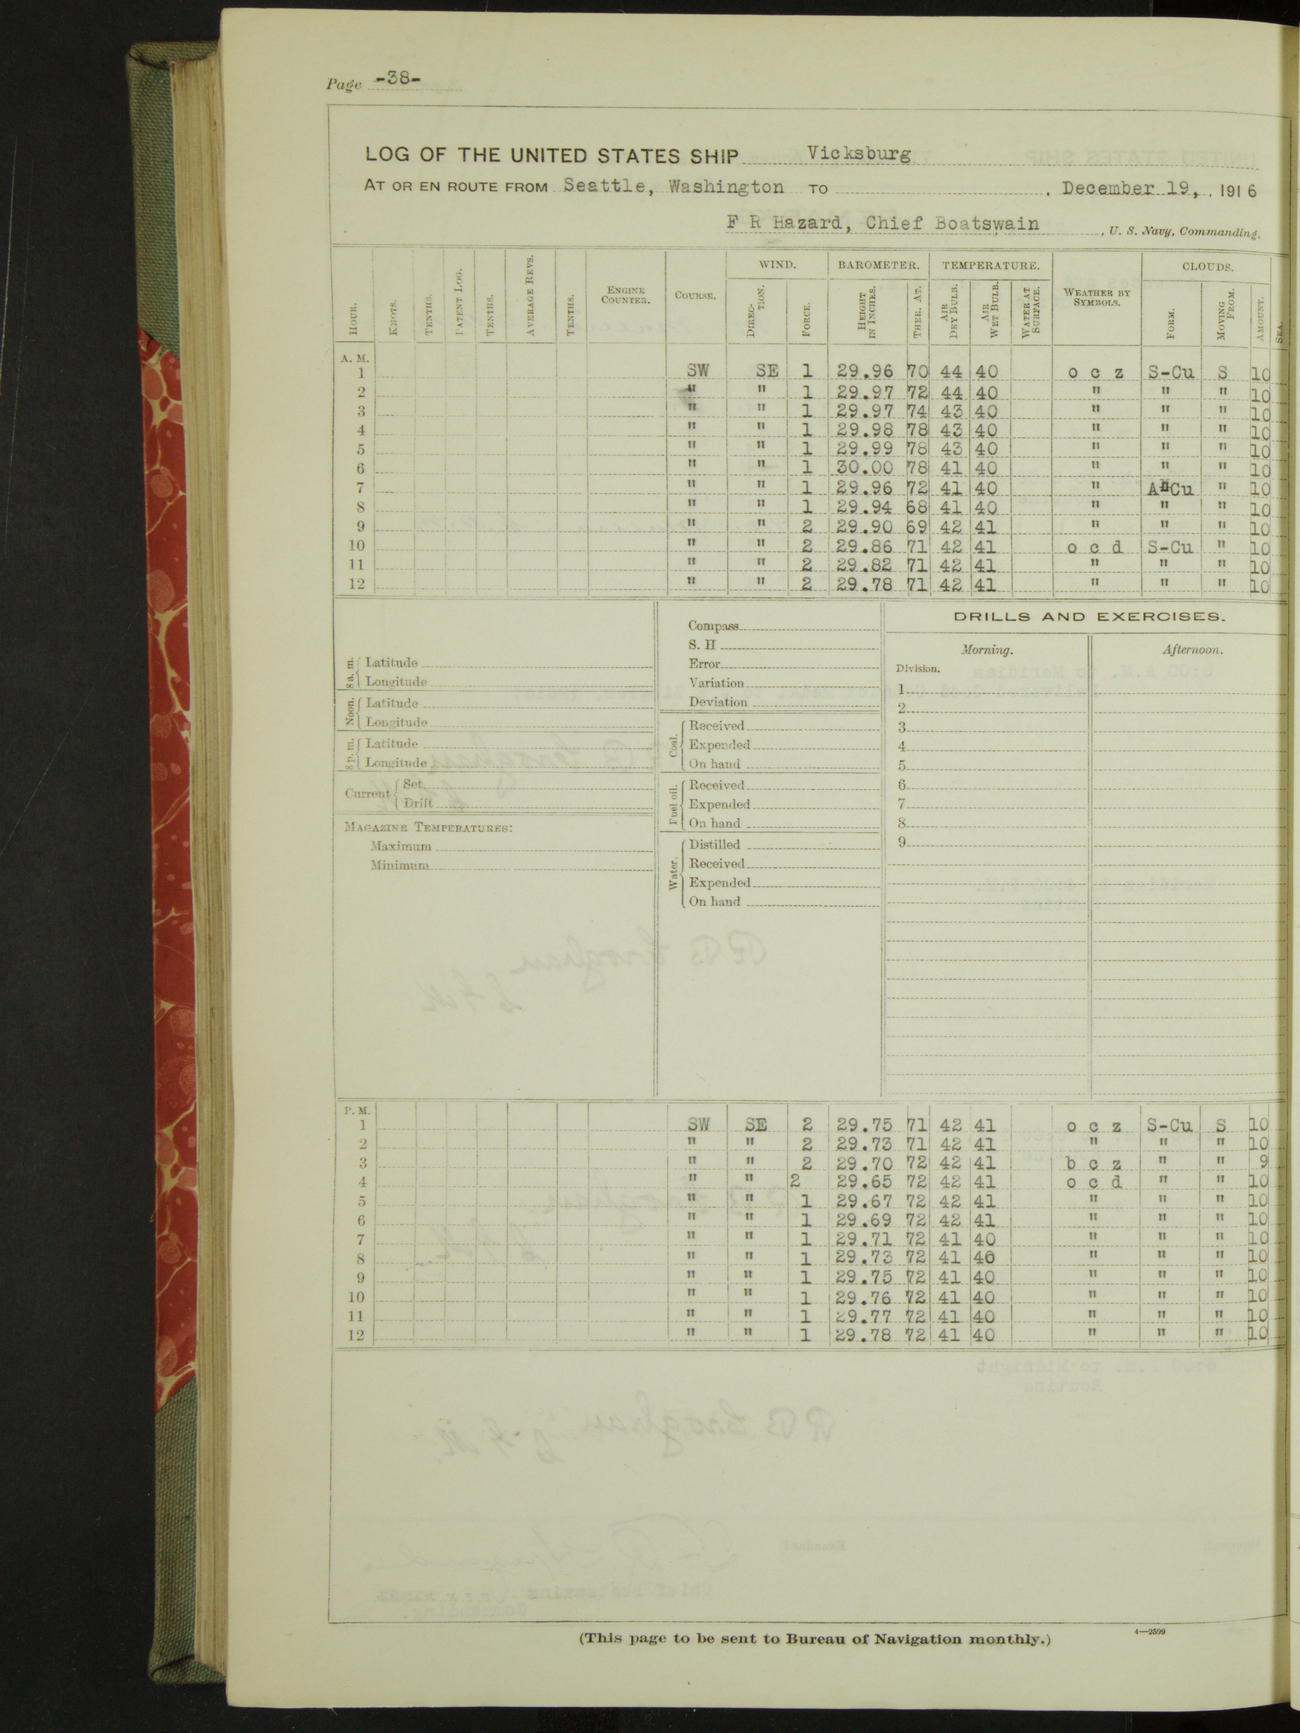 Page -38-
LOG OF THE UNITED STATES SHIP Vicksburg
AT OR EN ROUTE FROM Seattle, Washington TO , December 19, , 1916
F R Hazard, Chief Boatswain , U. S. Navy, Commanding.
WIND. BAROMETER. TEMPERATURE. CLOUDS.
HOUR. KNOTS. TENTHS. PATENT LOG. TENTHS. AVERAGE REVS. TENTHS. ENGINE COUNTER. COURSE. DIREC-TION. FORCE. HEIGHT IN INCHES. THER. AT. AIR DRY BULB. AIR WET BULB. WATER AT SURFACE. WEATHER BY SYMBOLS. FORM. MOVING FROM. AMOUNT. SEA.
A. M.
1 SW SE 1 29.96 70 44 40 o c z S-Cu S 10
2 " " 1 29.97 72 44 40 " " " 10
3 " " 1 29.97 74 43 40 " " " 10
4 " " 1 29.98 78 43 40 " " " 10
5 " " 1 29.99 78 43 40 " " " 10
6 " " 1 30.00 78 41 40 " " " 10
7 " " 1 29.96 72 41 40 " A-Cu " 10
8 " " 1 29.94 68 41 40 " " " 10
9 " " 2 29.90 69 42 41 " " " 10
10 " " 2 29.86 71 42 41 o c d S-Cu " 10
11 " " 2 29.82 71 42 41 " " " 10
12 " " 2 29.78 71 42 41 " " " 10
8 a. m. Latitude
Longitude
Noon. Latitude
Longitude
8 p. m. Latitude
Longitude
Current Set
Drift
MAGAZINE TEMPERATURES:
Maximum
Minimum
Compass
S. H
Error
Variation
Deviation
Coal. Received
Expended
On hand
Fuel oil. Received
Expended
On hand
Water. Distilled
Received
Expended
On hand
DRILLS AND EXERCISES.
Morning. Afternoon.
Division.
1
2
3
4
5
6
7
8
9
P. M.
1 SW SE 2 29.75 71 42 41 o c z S-Cu S 10
2 " " 2 29.73 71 42 41 " " " 10
3 " " 2 29.70 72 42 41 b c z " " 9
4 " " 2 29.65 72 42 41 o c d " " 10
5 " " 1 29.67 72 42 41 " " " 10
6 " " 1 29.69 72 42 41 " " " 10
7 " " 1 29.71 72 41 40 " " " 10
8 " " 1 29.73 72 41 40 " " " 10
9 " " 1 29.75 72 41 40 " " " 10
10 " " 1 29.76 72 41 40 " " " 10
11 " " 1 29.77 72 41 40 " " " 10
12 " " 1 29.78 72 41 40 " " " 10
(This page to be sent to Bureau of Navigation monthly.) 4—2599